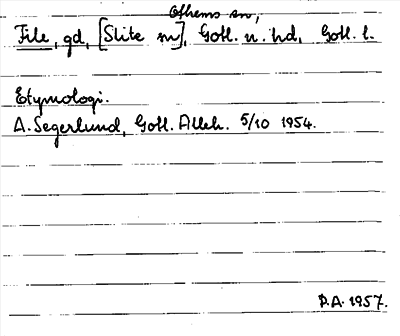 Othems sn,
File, gd, [Slite sn], Gotl. n. hd, Gotl. l.
Etymologi.
A. Segerlund, Gotl. Alleh. 5/10 1954.
P.A. 1957.